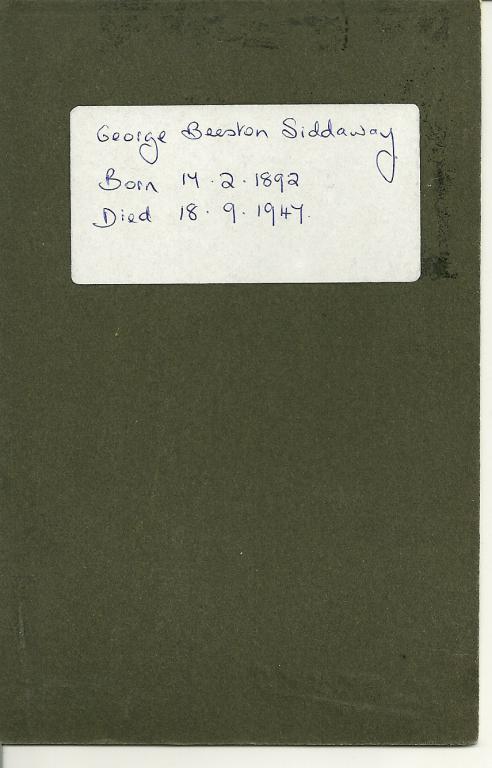 George Beeston Siddaway
Born 14 · 2 · 1892
Died 18 · 9 · 1947.